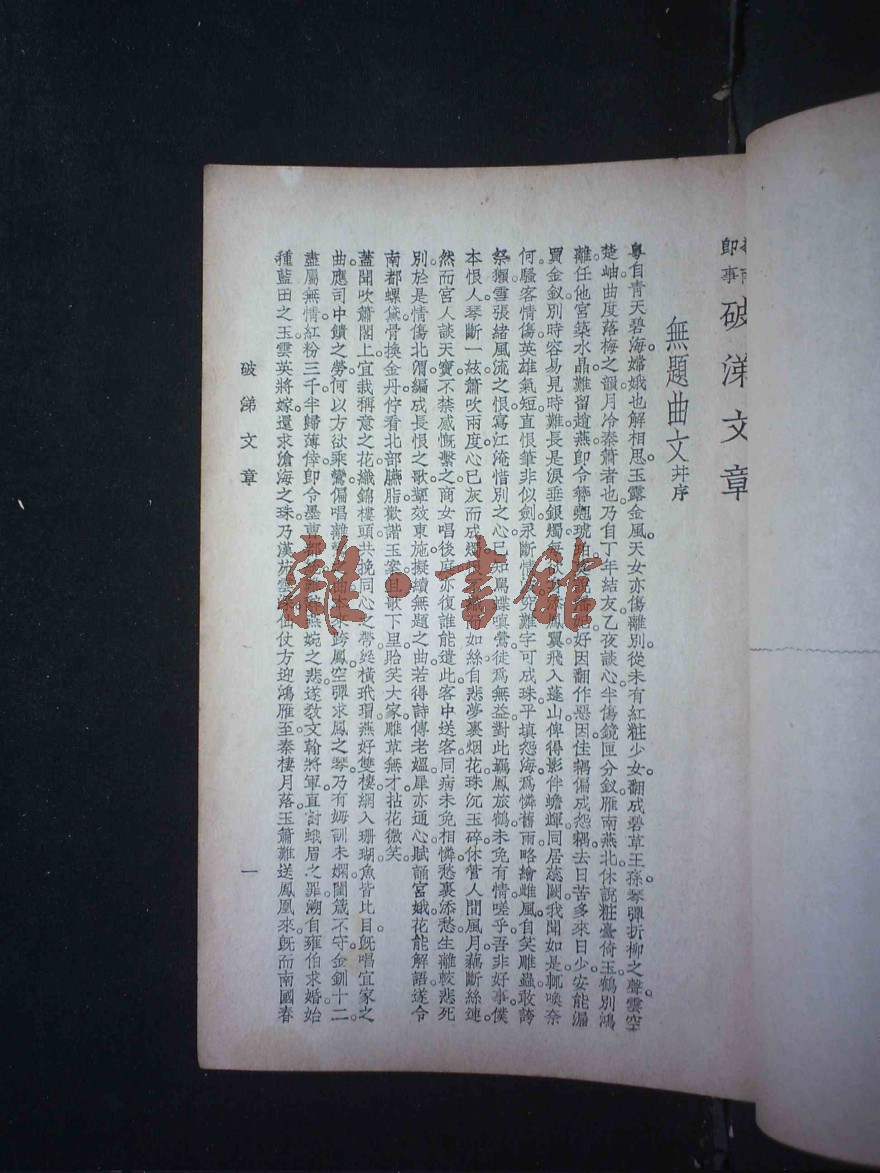 即事
破涕文章
無題曲文 并序
粵自青天碧海。嫦娥也解相思。玉露金風。天女亦傷離別。從未有紅粧少女。翻成碧草王孫。琴彈折柳之聲。雲空
楚岫。曲度落梅之韻。月冷秦簫者也。乃自丁年結友。乙夜談心。半傷鏡匣分釵。雁南燕北。休說粧臺倚玉。鶴別鴻
離。任他宮築水晶。難留趙燕。卽令簪翹琥珀
好因翻作惡因。佳耦偏成怨耦。去日苦多。來日少。安能漏
買金釵。別時容易見時難。長是淚垂銀燭。
鳳翼飛入蓬山。俾得影伴蟾輝。同居蕊闕。我聞如是。輒喚奈
何。騷客情傷。英雄氣短。直恨筆非似劍。永斷情
難字可成珠。平填怨海。爲憐舊雨。略繪雌風。自笑雕蟲。敢誇
祭獺。雪張緒風流之恨。寫江淹惜別之心。已知罵蝶嗔鶯。徒爲無益。對此孀鳳旅鶴。未免有情。嗟乎。吾非好事。僕
本恨人。琴斷一絃。簫吹兩度。心已灰而成燼
如絲。自悲夢裏烟花。珠沉玉碎。休管人間風月。藕斷絲連。
然而宮人談天寶。不禁感慨繫之。商女唱後庭。亦復誰能遣此。客中送客。同病未免相憐。愁裏添愁。生離較悲死
別。於是情傷北渭。編成長恨之歌。顰效東施。擬續無題之曲。若得詩傳老嫗。犀亦通心。賦誦宮娥。花能解語。遂令
南都螺黛。骨換金丹。佇看北部臙脂。歡諧玉案。且歌下里。貽笑大家。雕草無才。拈花微笑。
蓋聞吹簫閣上。宜栽稱意之花。織錦樓頭。共挽同心之帶。梁橫玳瑁。燕好雙棲。網入珊瑚。魚皆比目。旣唱宜家之
曲。應司中饋之勞。何以方欲乘鸞。偏唱離
跨鳳。空彈求鳳之琴。乃有姆訓未嫻。閨箴不守。金釧十二。
盡屬無情。紅粉三千。半歸薄倖。卽令墨
燕婉之悲。遂敎文翰將軍。直討蛾眉之罪。溯自雍伯求婚。始
種藍田之玉。雲英將嫁。還求滄海之珠。乃漢
仙仗方迎。鴻雁至。秦棲月落。玉簫難送鳳凰來。旣而南國春
破涕文章
一
雜·書館